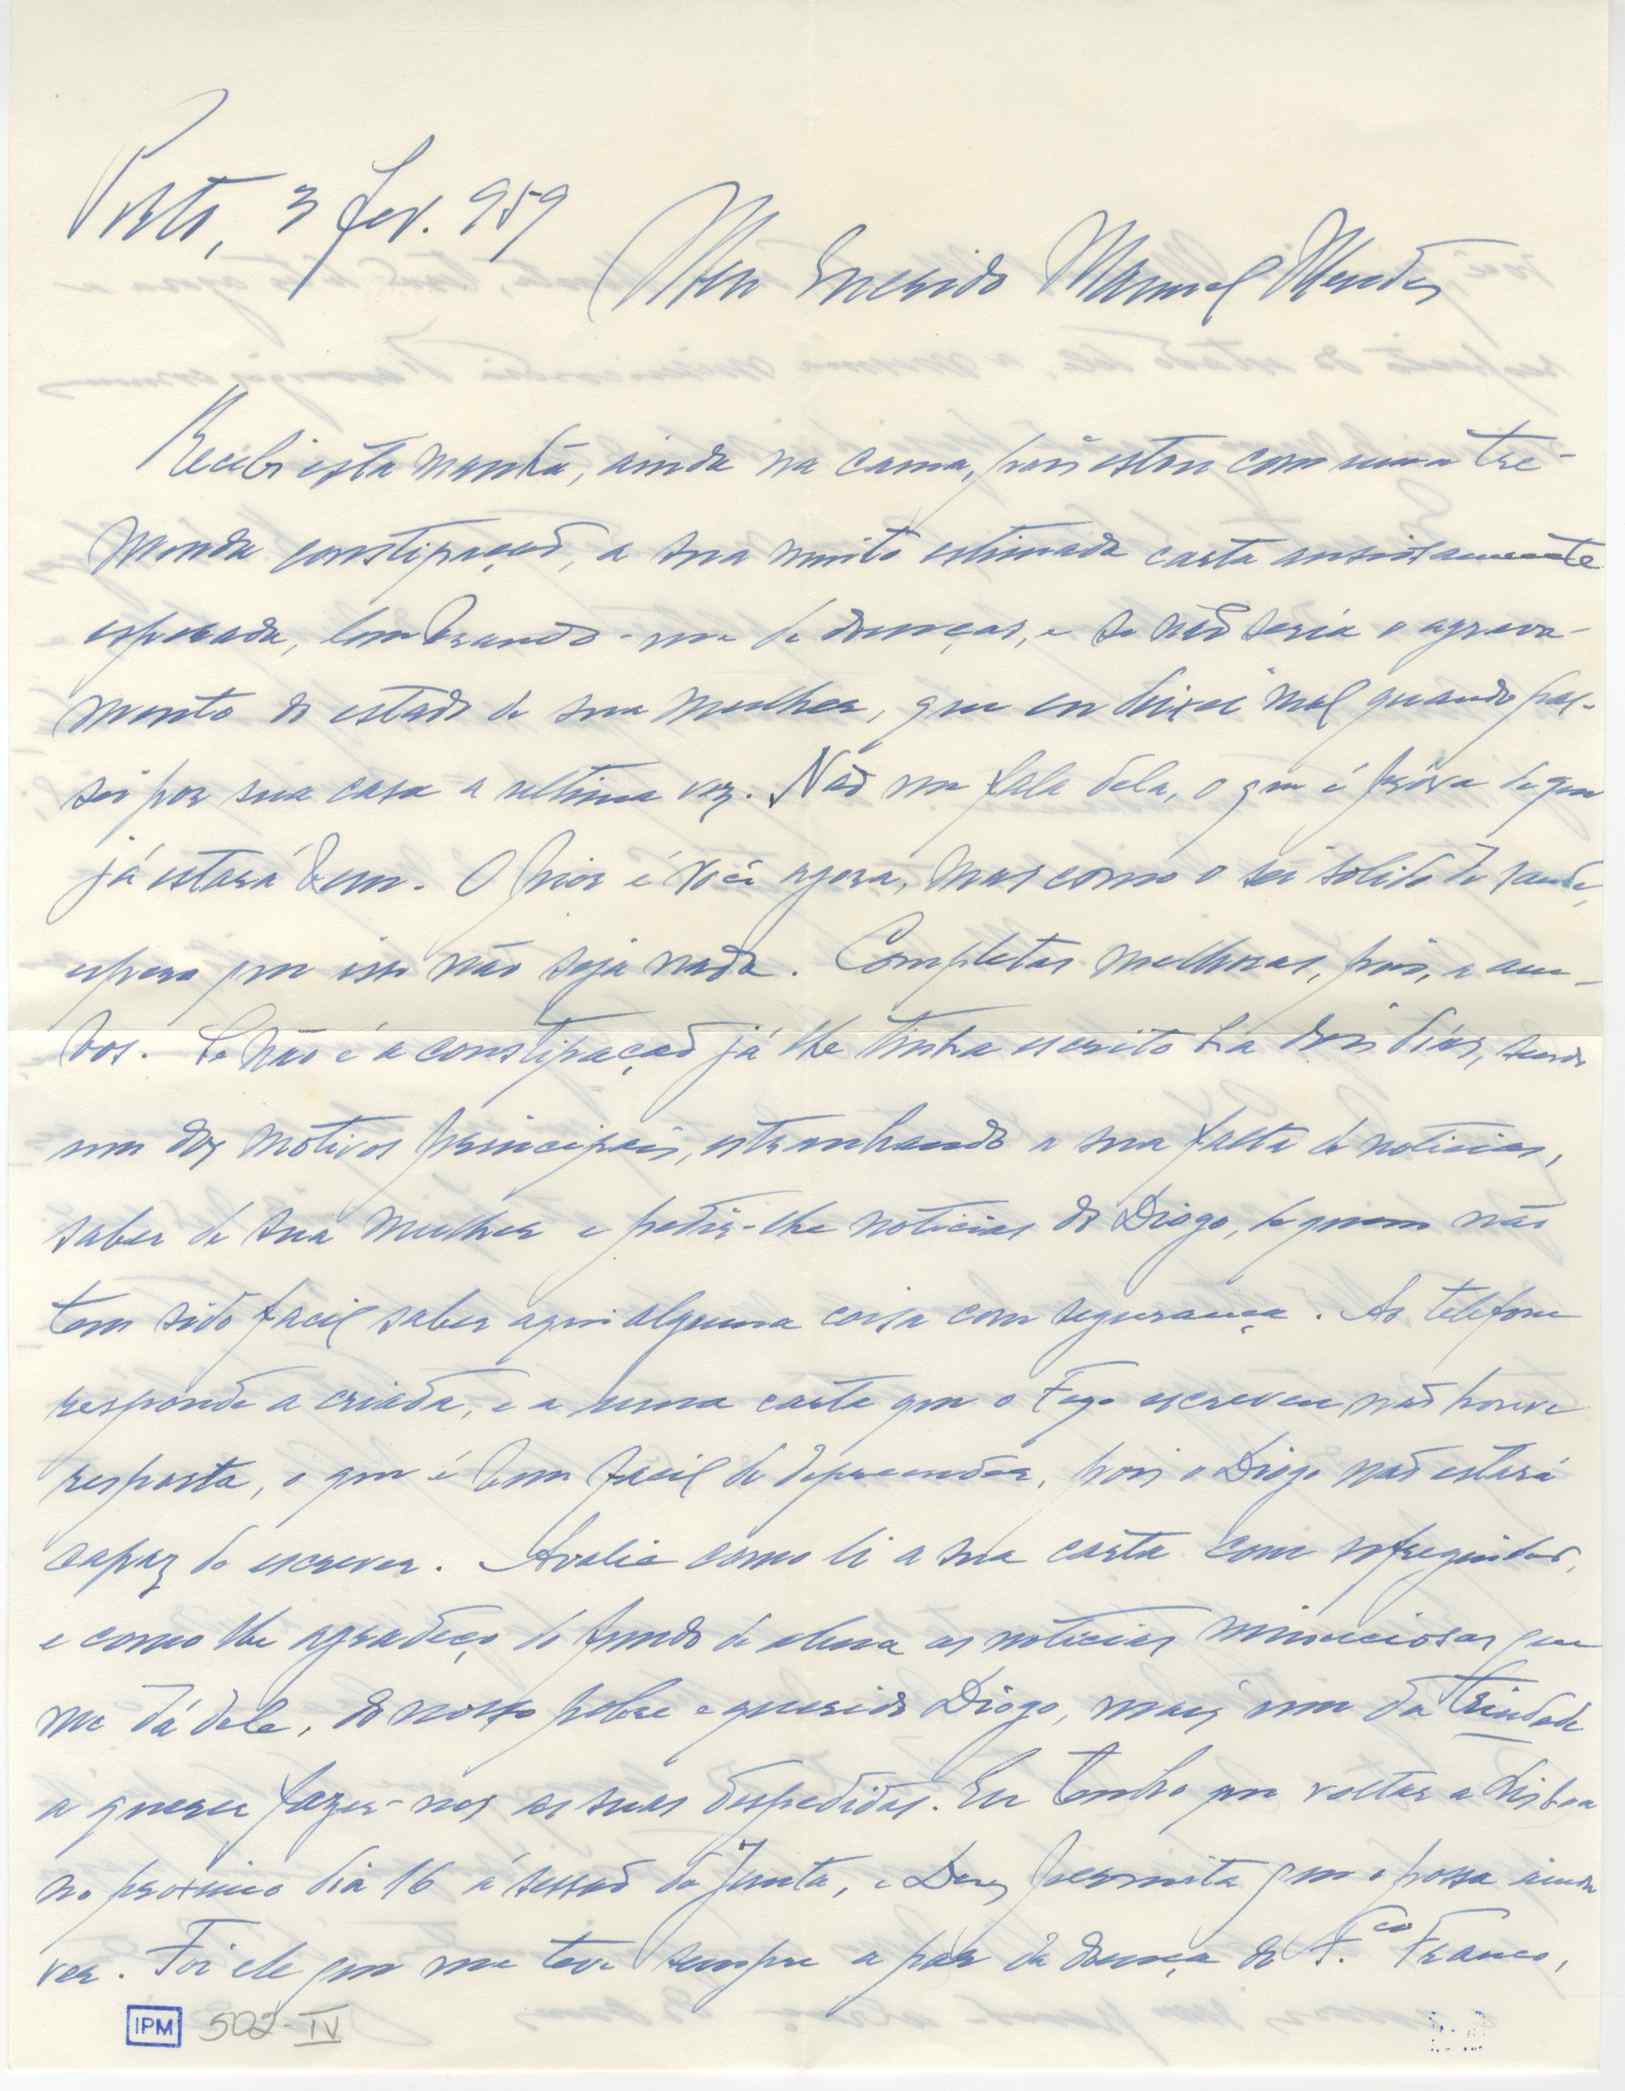 Porto, 3 Fev. 959
Meu Querido Manuel Mendes
Recebi esta manhã, ainda na cama, pois estou com uma tre-
menda constipação, a sua muito estimada carta ansiosamente
esperada, lembrando-me de doenças, e se não seria o agrava-
mento do estado de sua mulher, que eu deixei mal quando pas-
sei por sua casa a ultima vez. Não me fala dela, o que é prova de que
já estará bem. O pior é você agora, mas como o sei solido de saude,
espero que isso não seja nada. Completas melhoras, pois, a am-
bos. Se não é a constipação já lhe tinha escrito ha dois dias, sendo
um dos motivos principais, estranhando a sua falta de noticias,
saber de sua mulher e pedir-lhe noticias do Diogo, de quem não
tem sido facil saber aqui alguma coisa com segurança. Ao telefone
responde a criada, e a uma carta que o escreveu não houve
resposta, o que é bem facil de depreender, pois o Diogo não estará
capaz de escrever. Avalie como li a sua carta com sofreguidão,
e como lhe agradeço do fundo da alma as noticias minuciosas que
me dá dele, do nosso pobre e querido Diogo, mais um da trindade
a querer fazer-nos as suas despedidas. Eu tenho que voltar a Lisboa
no proximo dia 16 á sessão da Junta, e Deus permita que o possa ainda
ver. Foi ele que me teve sempre a par da doença do F.co Franco,
IPM 502-IV